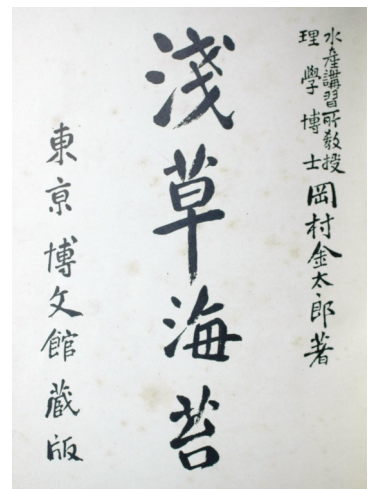 水産講習所教授
理學博士
岡村金太郎著
淺草海苔
東京博文館藏版